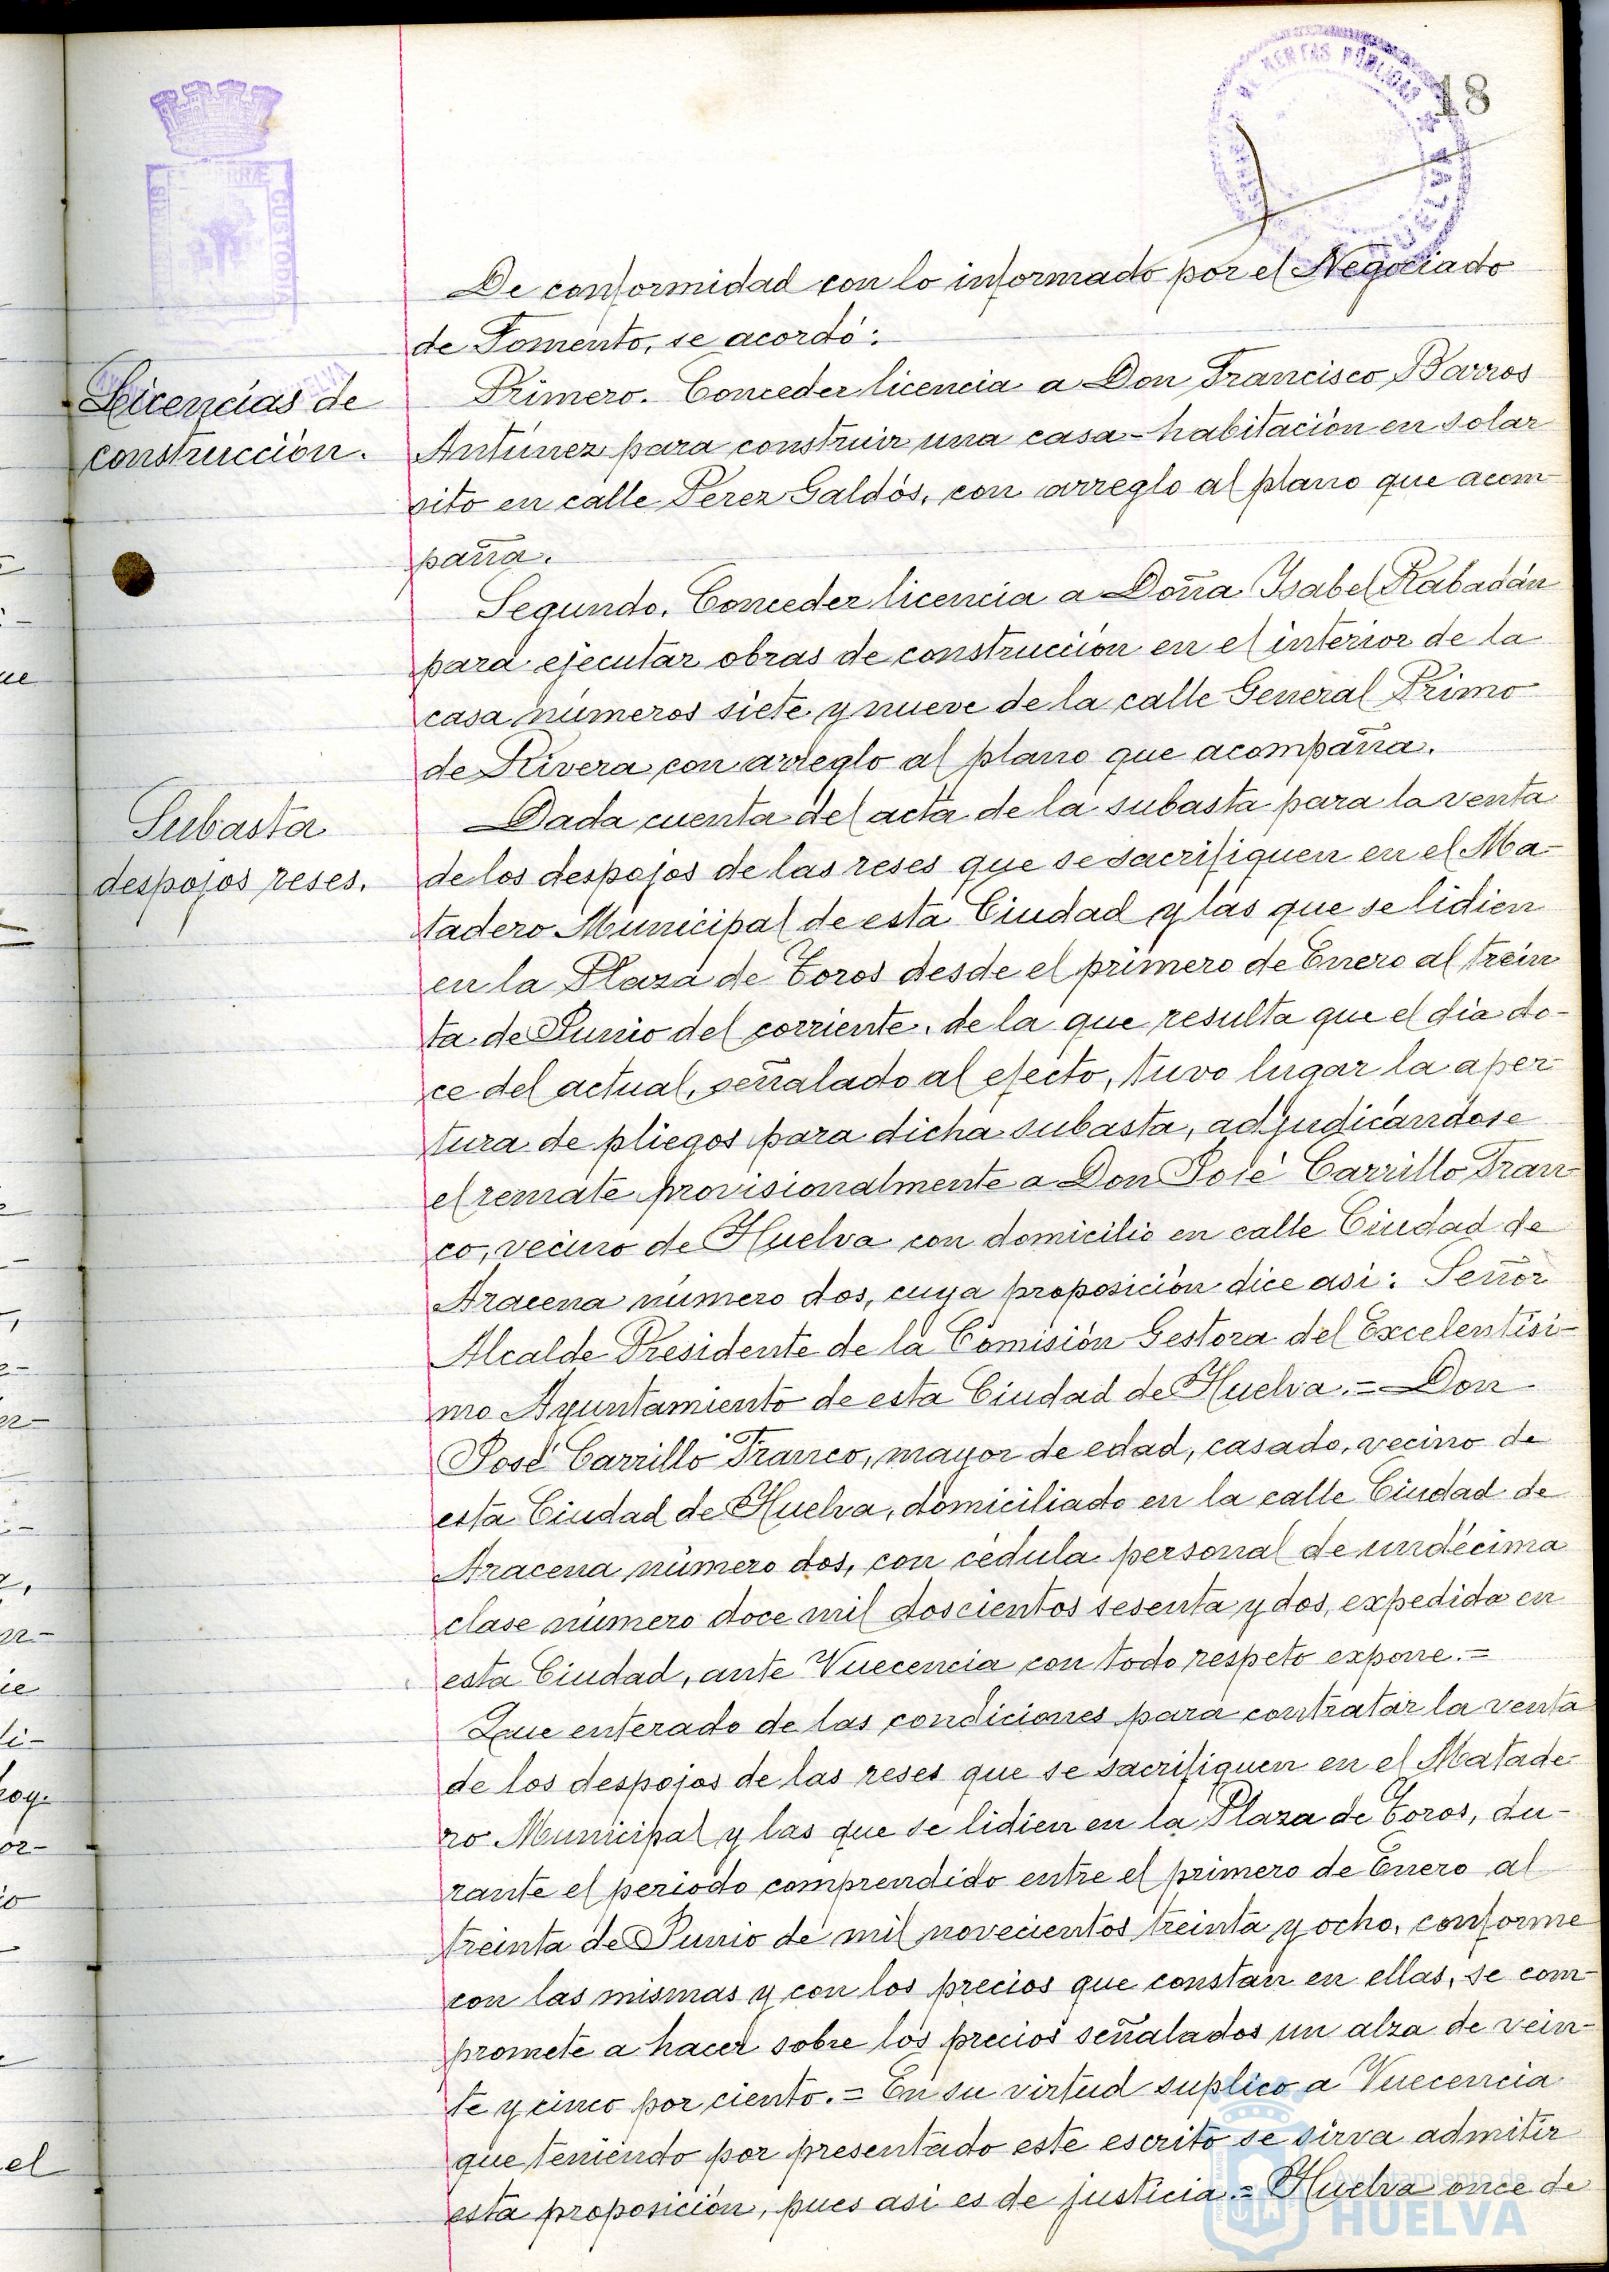 18
De conformidad con lo informado por el Negociado
de Fomento, se acordó:
Licencias de
construcción.
Primero. Conceder licencia a Don Francisco Barros
Antúnez para construir una casa-habitación en solar
sito en calle Perez Galdós, con arreglo al plano que acom-
paña.
Segundo. Conceder licencia a Doña Isabel Rabadán
para ejecutar obras de construcción en el interior de la
casa números siete y nueve de la calle General Primo
de Rivera con arreglo al plano que acompaña.
Subasta
despojos reses.
Dada cuenta del acta de la subasta para la venta
de los despojos de las reses que se sacrifiquen en el Ma-
tadero Municipal de esta Ciudad y las que se lidien
en la Plaza de Toros desde el primero de Enero al trein
ta de Junio del corriente, de la que resulta que el día do-
ce del actual, señalado al efecto, tuvo lugar la aper-
tura de pliegos para dicha subasta, adjudicándose
el remate provisionalmente a Don José Carrillo Fran-
co, vecino de Huelva con domicilio en calle Ciudad de
Aracena número dos, cuya proposición dice asi: Señor
Alcalde Presidente de la Comisión Gestora del Excelentísi-
mo Ayuntamiento de esta Ciudad de Huelva.= Don
José Carrillo Franco, mayor de edad, casado, vecino de
esta Ciudad de Huelva, domiciliado en la calle Ciudad de
Aracena número dos, con cédula personal de undécima
clase número doce mil doscientos sesenta y dos, expedida en
esta Ciudad, ante Vuecencia con todo respeto expone.=
Que enterado de las condiciones para contratar la venta
de los despojos de las reses que se sacrifiquen en el Matade-
ro Municipal y las que se lidien en la Plaza de Toros, du-
rante el periodo comprendido entre el primero de Enero al
treinta de Junio de mil novecientos treinta y ocho, conforme
con las mismas y con los precios que constan en ellas, se com-
promete a hacer sobre los precios señalados un alza de vein-
te y cinco por ciento.= En su virtud suplico a Vuecencia
que teniendo por presentado este escrito se sirva admitir
esta proposición, pues asi es de justicia.= Huelva once de
Ayuntamiento de
HUELVA